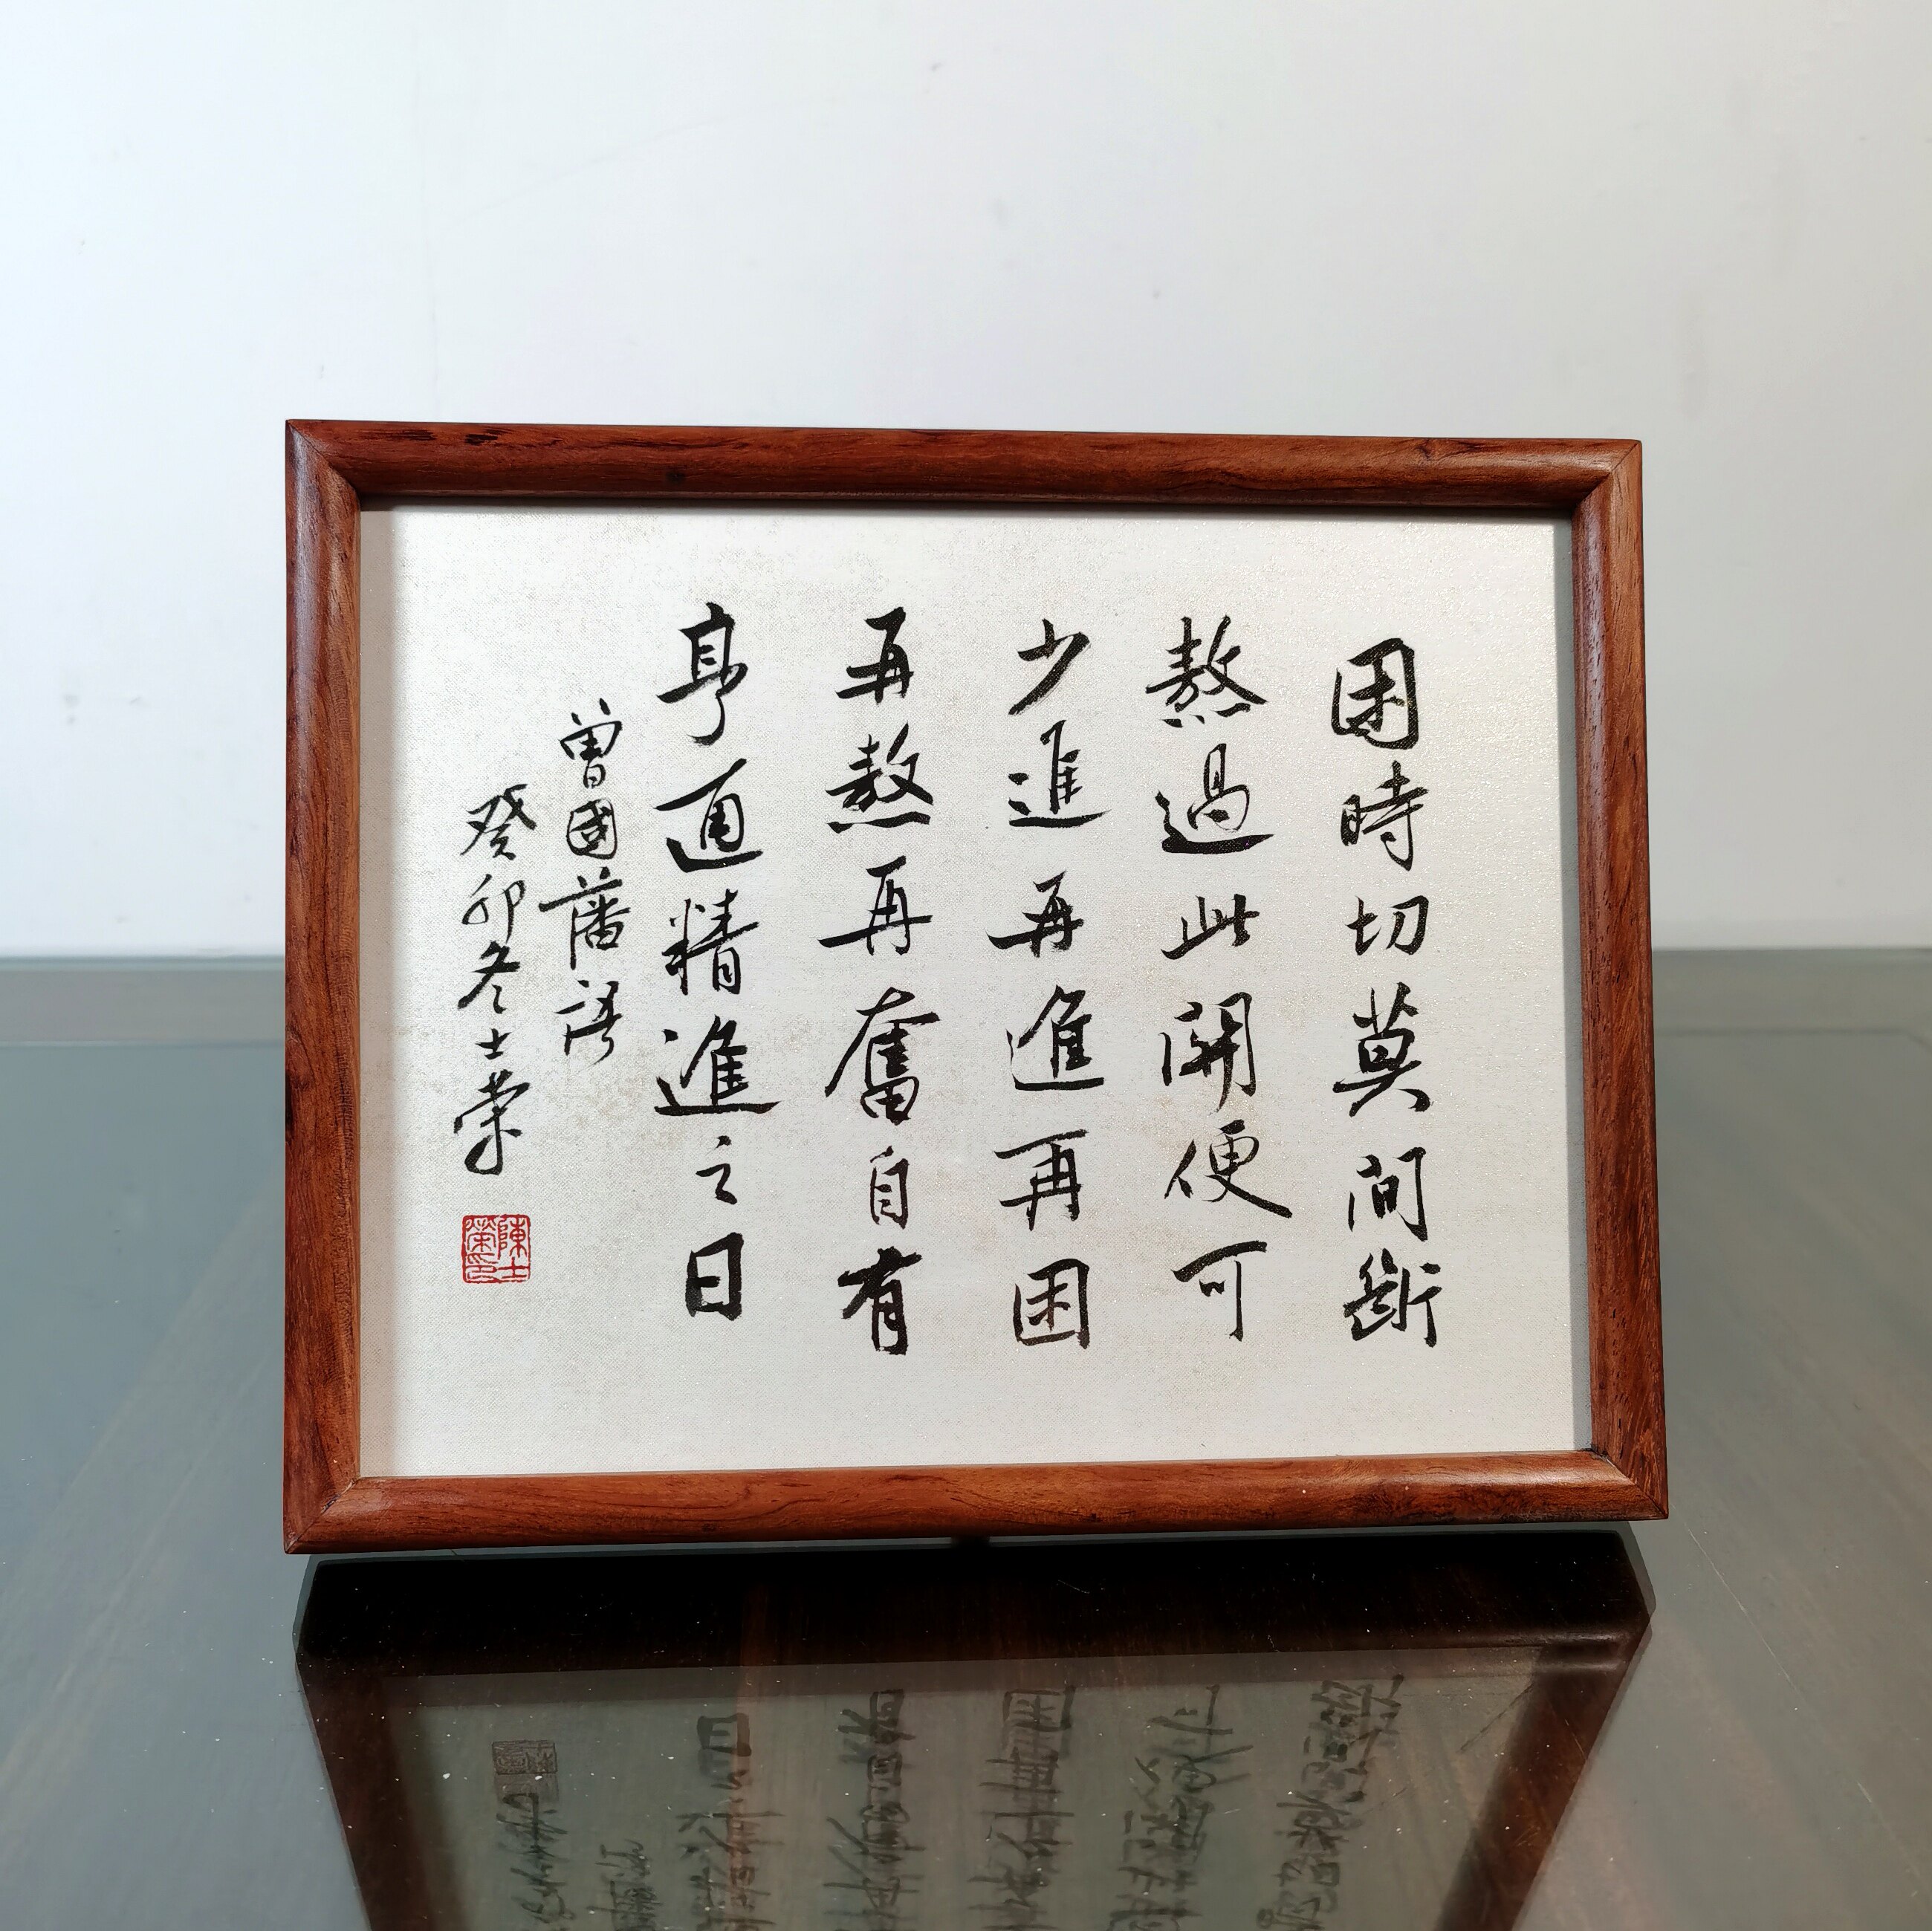 困時切莫間斷
熬過此關便可
少進再進再困
再熬再奮自有
亨通精進之日
曾國藩語
癸卯冬士榮
陳士榮印